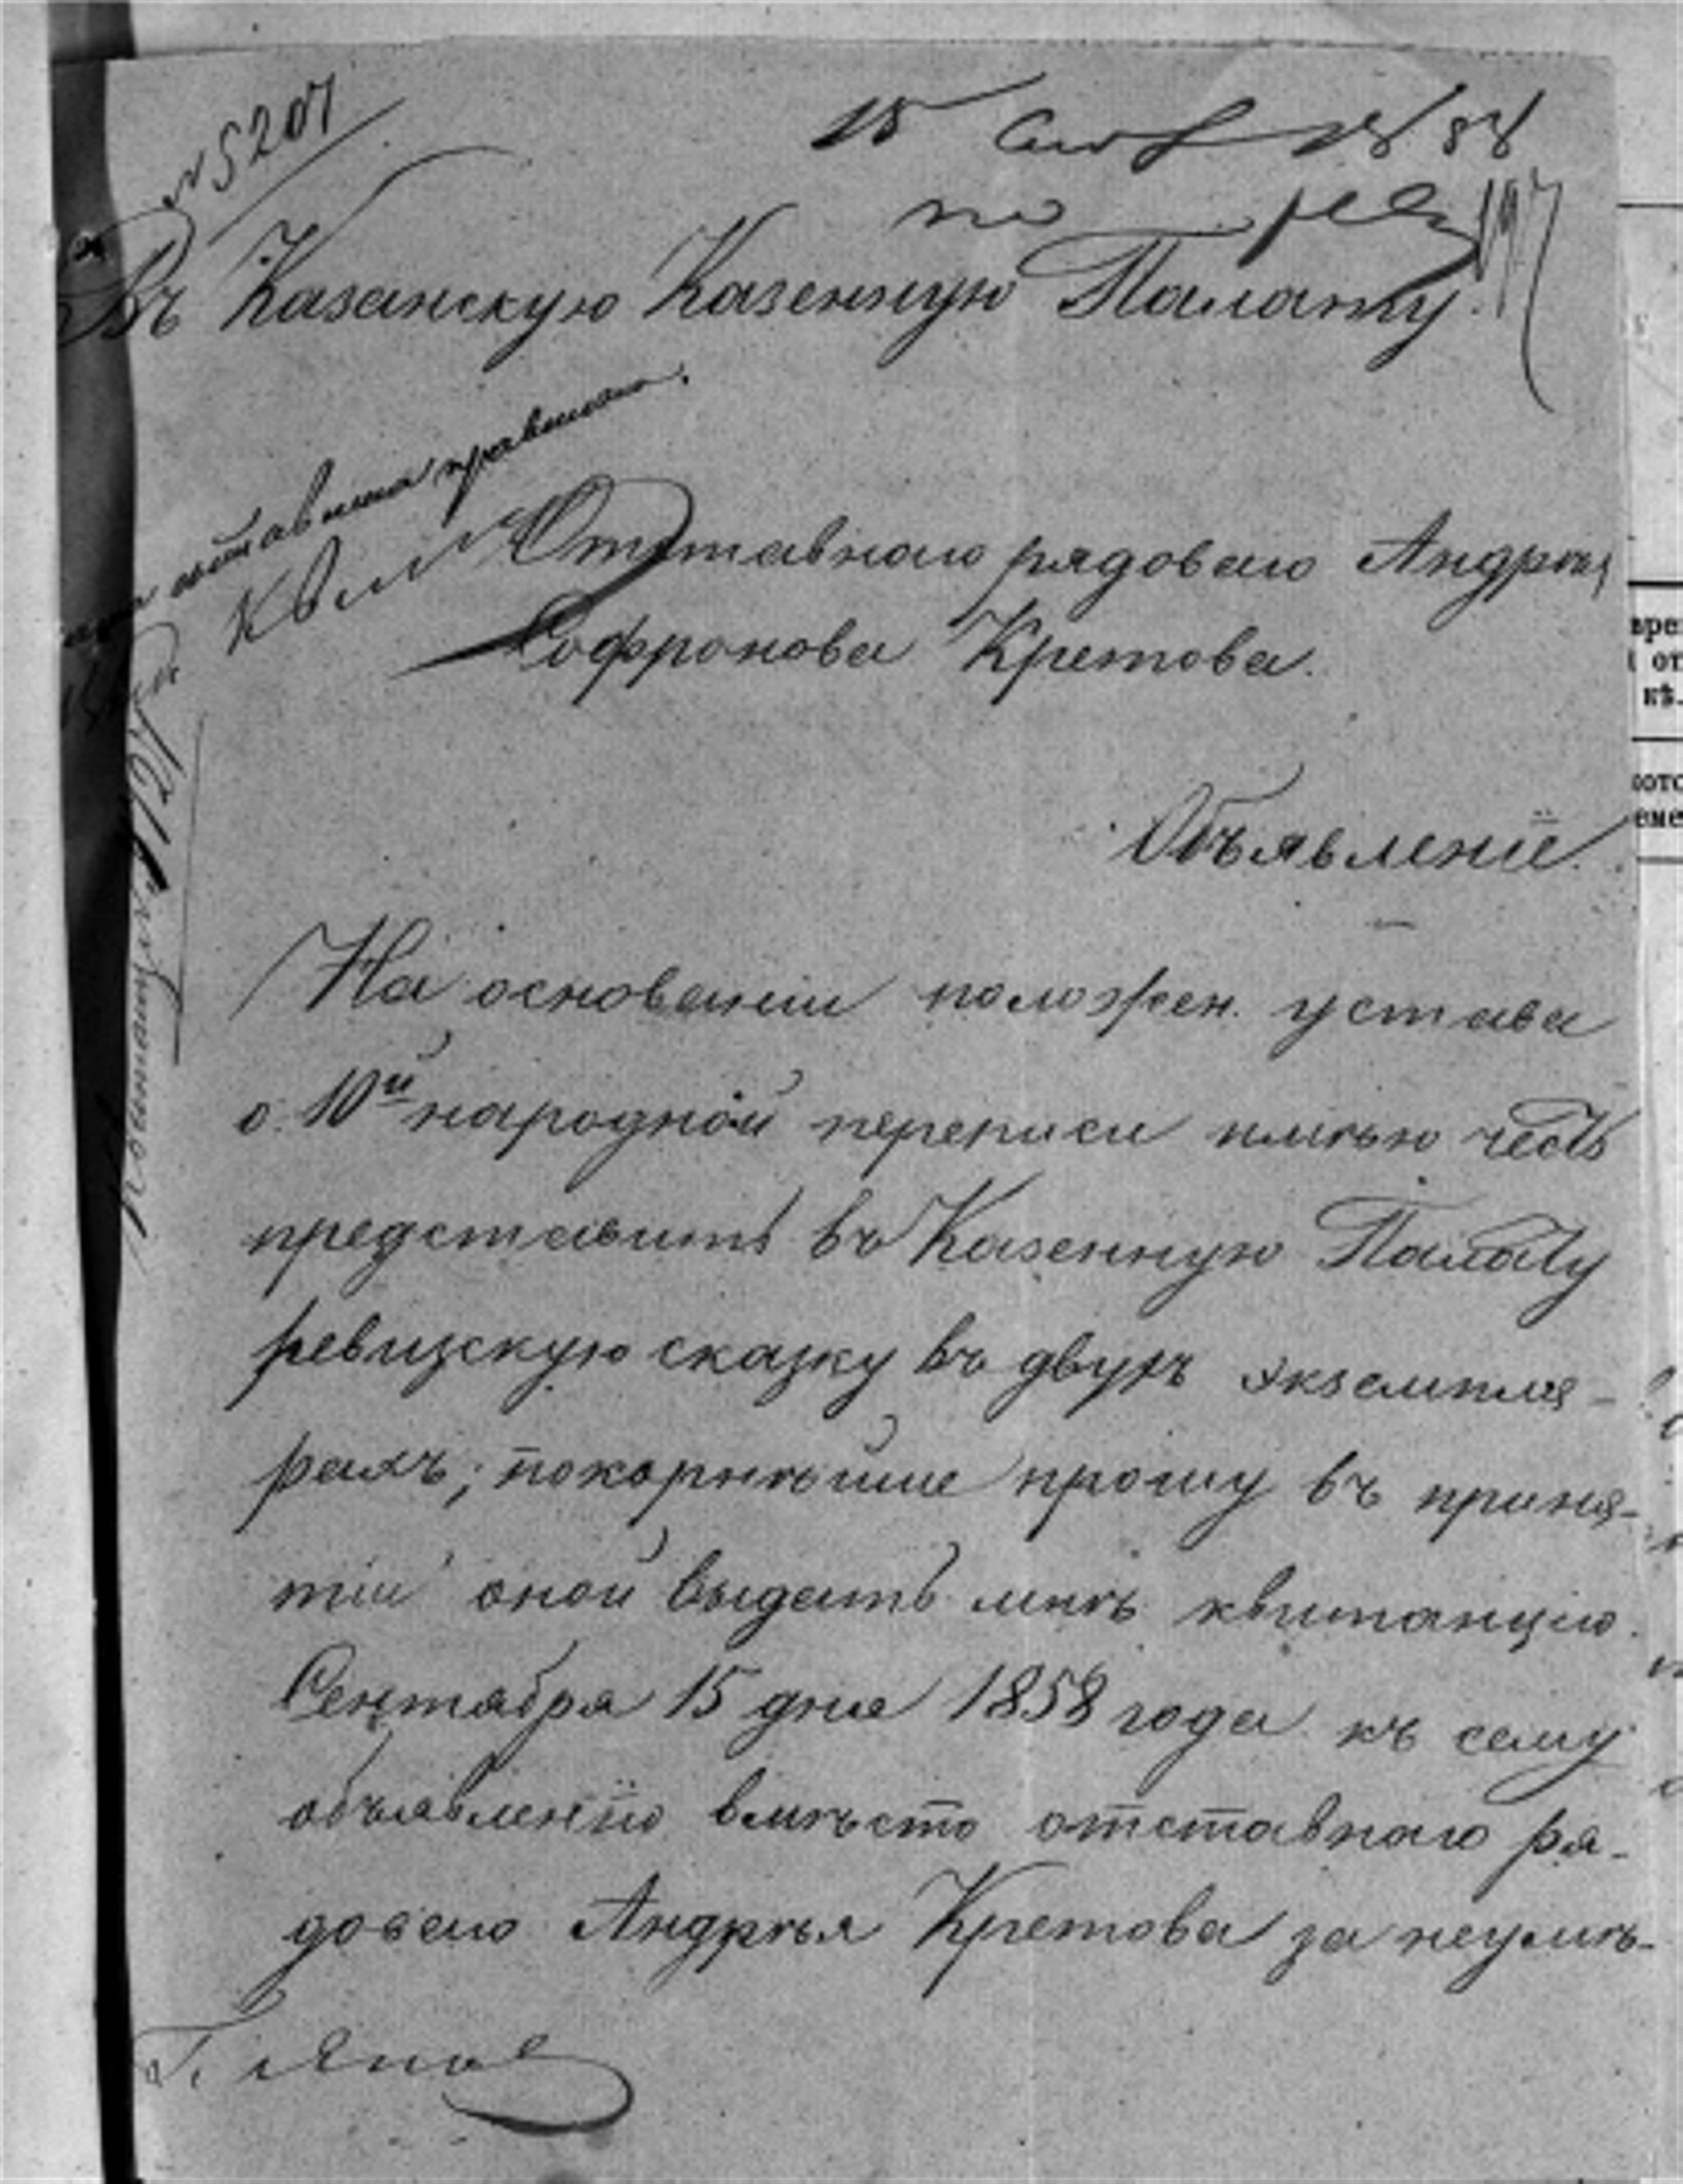 № 5207
15 Сен 1858
по рев
197
Въ Казанскую Казенную Палату.
составлена правильно.
Отставнаго рядоваго Андрея
Софронова Кретова.
Объявленіе.
На основаніи положен. устава
о 10й народной переписи имѣю честь
представить въ Казенную Палату
ревизскую сказку въ двухъ экземпля-
рахъ; покорнѣйше прошу въ приня-
тіи оной выдать мнѣ квитанцію.
Сентября 15 дня 1858 года къ сему
объявленію вмѣсто отставнаго ря-
доваго Андрѣя Кретова за неумѣ-
вре
от
кѣ.
еме